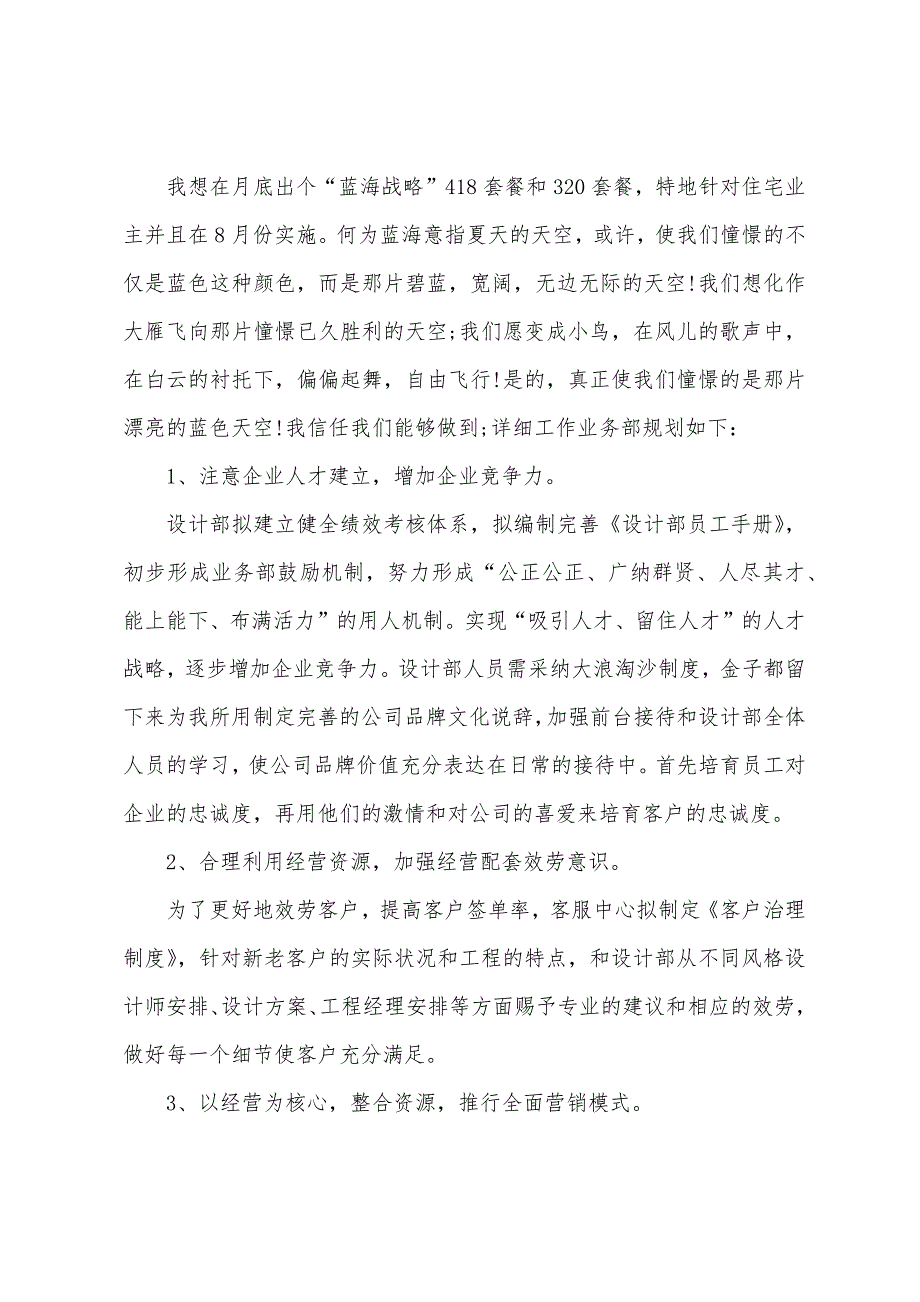 我想在月底出个“蓝海战略”418 套餐和 320 套餐，特地针对住宅业
主并且在 8 月份实施。何为蓝海意指夏天的天空，或许，使我们憧憬的不
仅是蓝色这种颜色，而是那片碧蓝，宽阔，无边无际的天空!我们想化作
大雁飞向那片憧憬已久胜利的天空;我们愿变成小鸟，在风儿的歌声中，
在白云的衬托下，偏偏起舞，自由飞行!是的，真正使我们憧憬的是那片
漂亮的蓝色天空!我信任我们能够做到;详细工作业务部规划如下：
1、注意企业人才建立，增加企业竞争力。
设计部拟建立健全绩效考核体系，拟编制完善《设计部员工手册》，
初步形成业务部鼓励机制，努力形成“公正公正、广纳群贤、人尽其才、
能上能下、布满活力”的用人机制。实现“吸引人才、留住人才”的人才
战略，逐步增加企业竞争力。设计部人员需采纳大浪淘沙制度，金子都留
下来为我所用制定完善的公司品牌文化说辞，加强前台接待和设计部全体
人员的学习，使公司品牌价值充分表达在日常的接待中。首先培育员工对
企业的忠诚度，再用他们的激情和对公司的喜爱来培育客户的忠诚度。
2、合理利用经营资源，加强经营配套效劳意识。
为了更好地效劳客户，提高客户签单率，客服中心拟制定《客户治理
制度》，针对新老客户的实际状况和工程的特点，和设计部从不同风格设
计师安排、设计方案、工程经理安排等方面赐予专业的建议和相应的效劳，
做好每一个细节使客户充分满足。
3、以经营为核心，整合资源，推行全面营销模式。